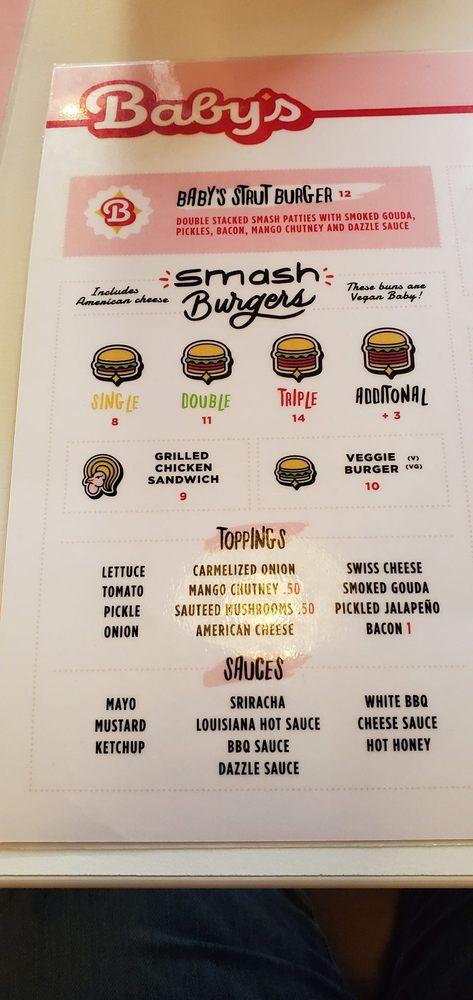 Baby's
B
BABY'S STRUT BURGER 12
DOUBLE STACKED SMASH PATTIES WITH SMOKED GOUDA,
PICKLES, BACON, MANGO CHUTNEY AND DAZZLE SAUCE
Includes
American cheese
smash
Burgers
These buns are
Vegan Baby!
SINGLE
8
DOUBLE
11
TRIPLE
14
ADDITONAL
+ 3
GRILLED
CHICKEN
SANDWICH
9
VEGGIE (V)
BURGER (VG)
10
TOPPINGS
LETTUCE
TOMATO
PICKLE
ONION
CARMELIZED ONION
MANGO CHUTNEY .50
SAUTEED MUSHROOMS .50
AMERICAN CHEESE
SWISS CHEESE
SMOKED GOUDA
PICKLED JALAPEÑO
BACON 1
SAUCES
MAYO
MUSTARD
KETCHUP
SRIRACHA
LOUISIANA HOT SAUCE
BBQ SAUCE
DAZZLE SAUCE
WHITE BBQ
CHEESE SAUCE
HOT HONEY